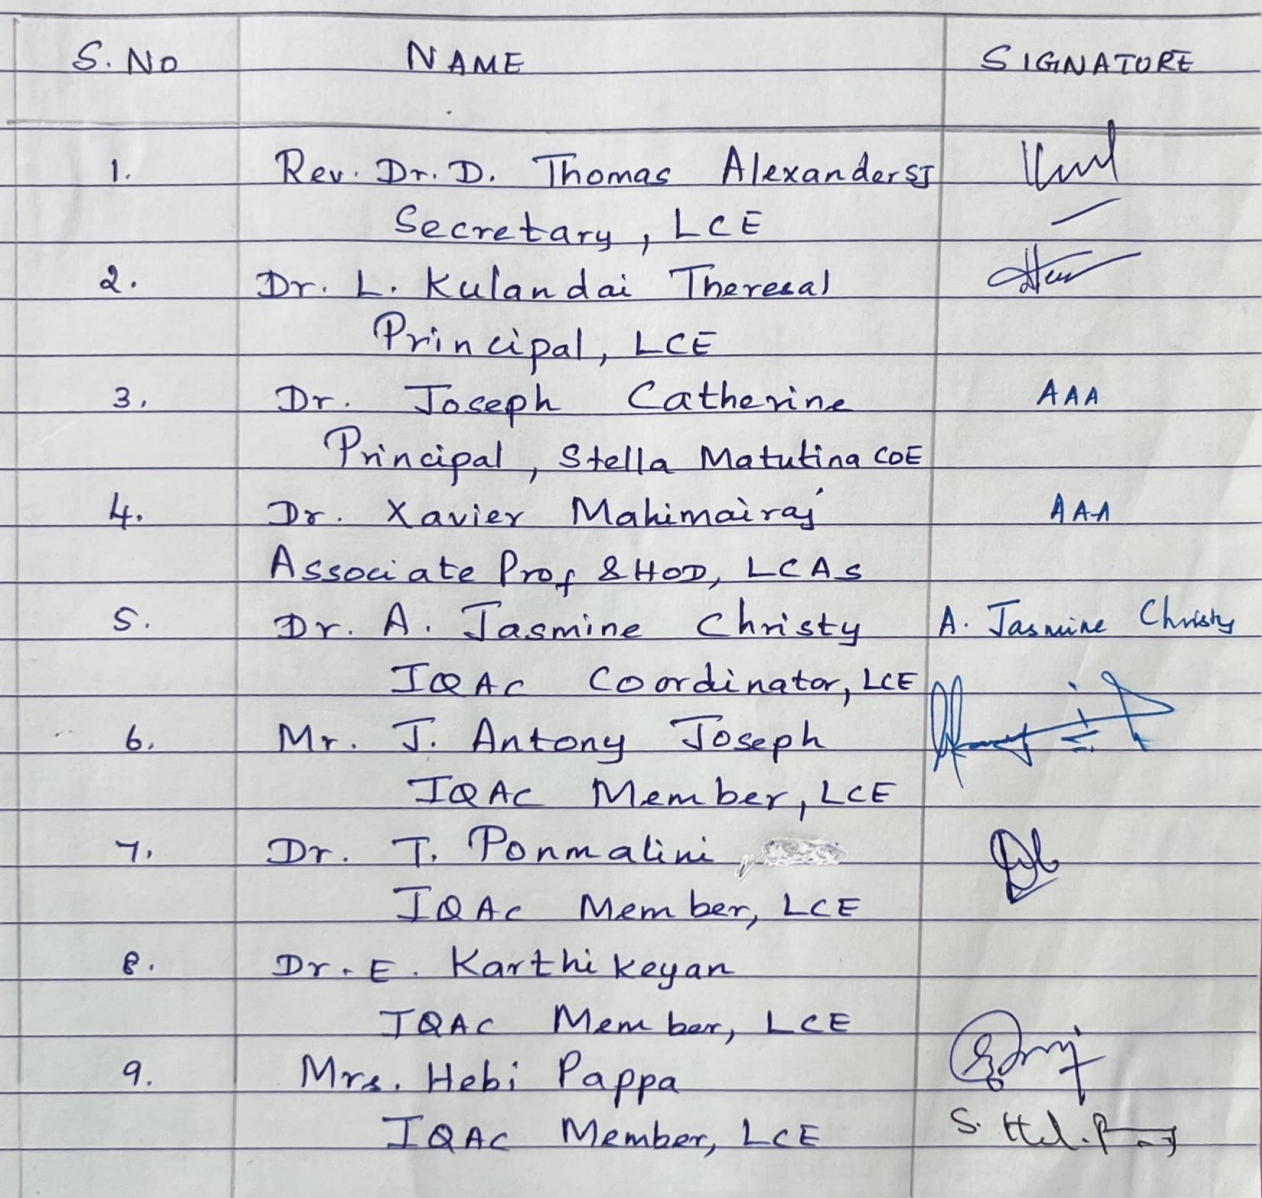 S. NO NAME SIGNATURE
1. Rev. Dr. D. Thomas Alexander SJ
Secretary, LCE
2. Dr. L. Kulandai Theresal
Principal, LCE
3. Dr. Joseph Catherine AAA
Principal, Stella Matutina COE
4. Dr. Xavier Mahimairaj AAA
Associate Prof & HOD, LCAS
5. Dr. A. Jasmine Christy A. Jasmine Christy
IQAC Coordinator, LCE
6. Mr. J. Antony Joseph
IQAC Member, LCE
7. Dr. T. Ponmalini
IQAC Member, LCE
8. Dr. E. Karthikeyan
IQAC Member, LCE
9. Mrs. Hebi Pappa
IQAC Member, LCE S.